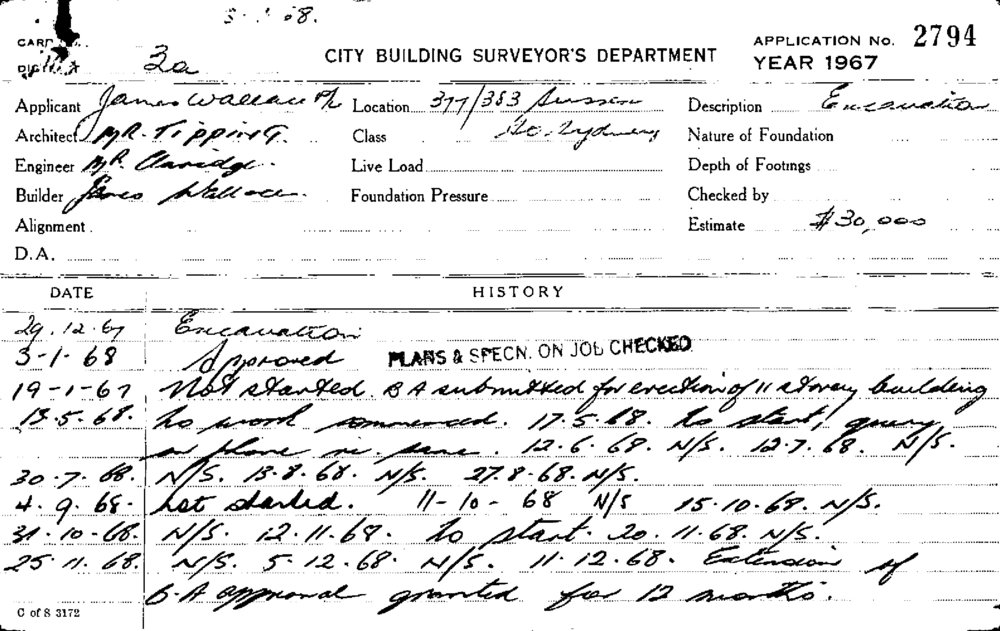 3. .68.
CARD No.
DISTRICT 3a CITY BUILDING SURVEYOR'S DEPARTMENT APPLICATION No. 2794
YEAR 1967
Applicant James Wallace P/L Location 377/383 Sussex Description Excavation
Architect MR. TIPPING. Class St. Sydney Nature of Foundation
Engineer MR Claridge. Live Load Depth of Footings
Builder James Wallace. Foundation Pressure Checked by
Alignment Estimate $30,000
D.A.
DATE HISTORY
29.12.67 Excavation
3-1-68 Approved PLANS & SPECN. ON JOB CHECKED
19-1-67 Not started. BA submitted for erection of 11 storey building
13.5.68. No work commenced. 17.5.68. No start, query
12.6.68. N/S. 12.7.68. N/S.
30.7.68. N/S. 13.8.68. N/S. 27.8.68. N/S.
4.9.68. Not started. 11-10-68 N/S 15.10.68. N/S.
31.10.68. N/S. 12.11.68. No start. 20.11.68. N/S.
25.11.68. N/S. 5.12.68. N/S. 11.12.68. Extension of
B.A approval granted for 12 months.
C of S 3172